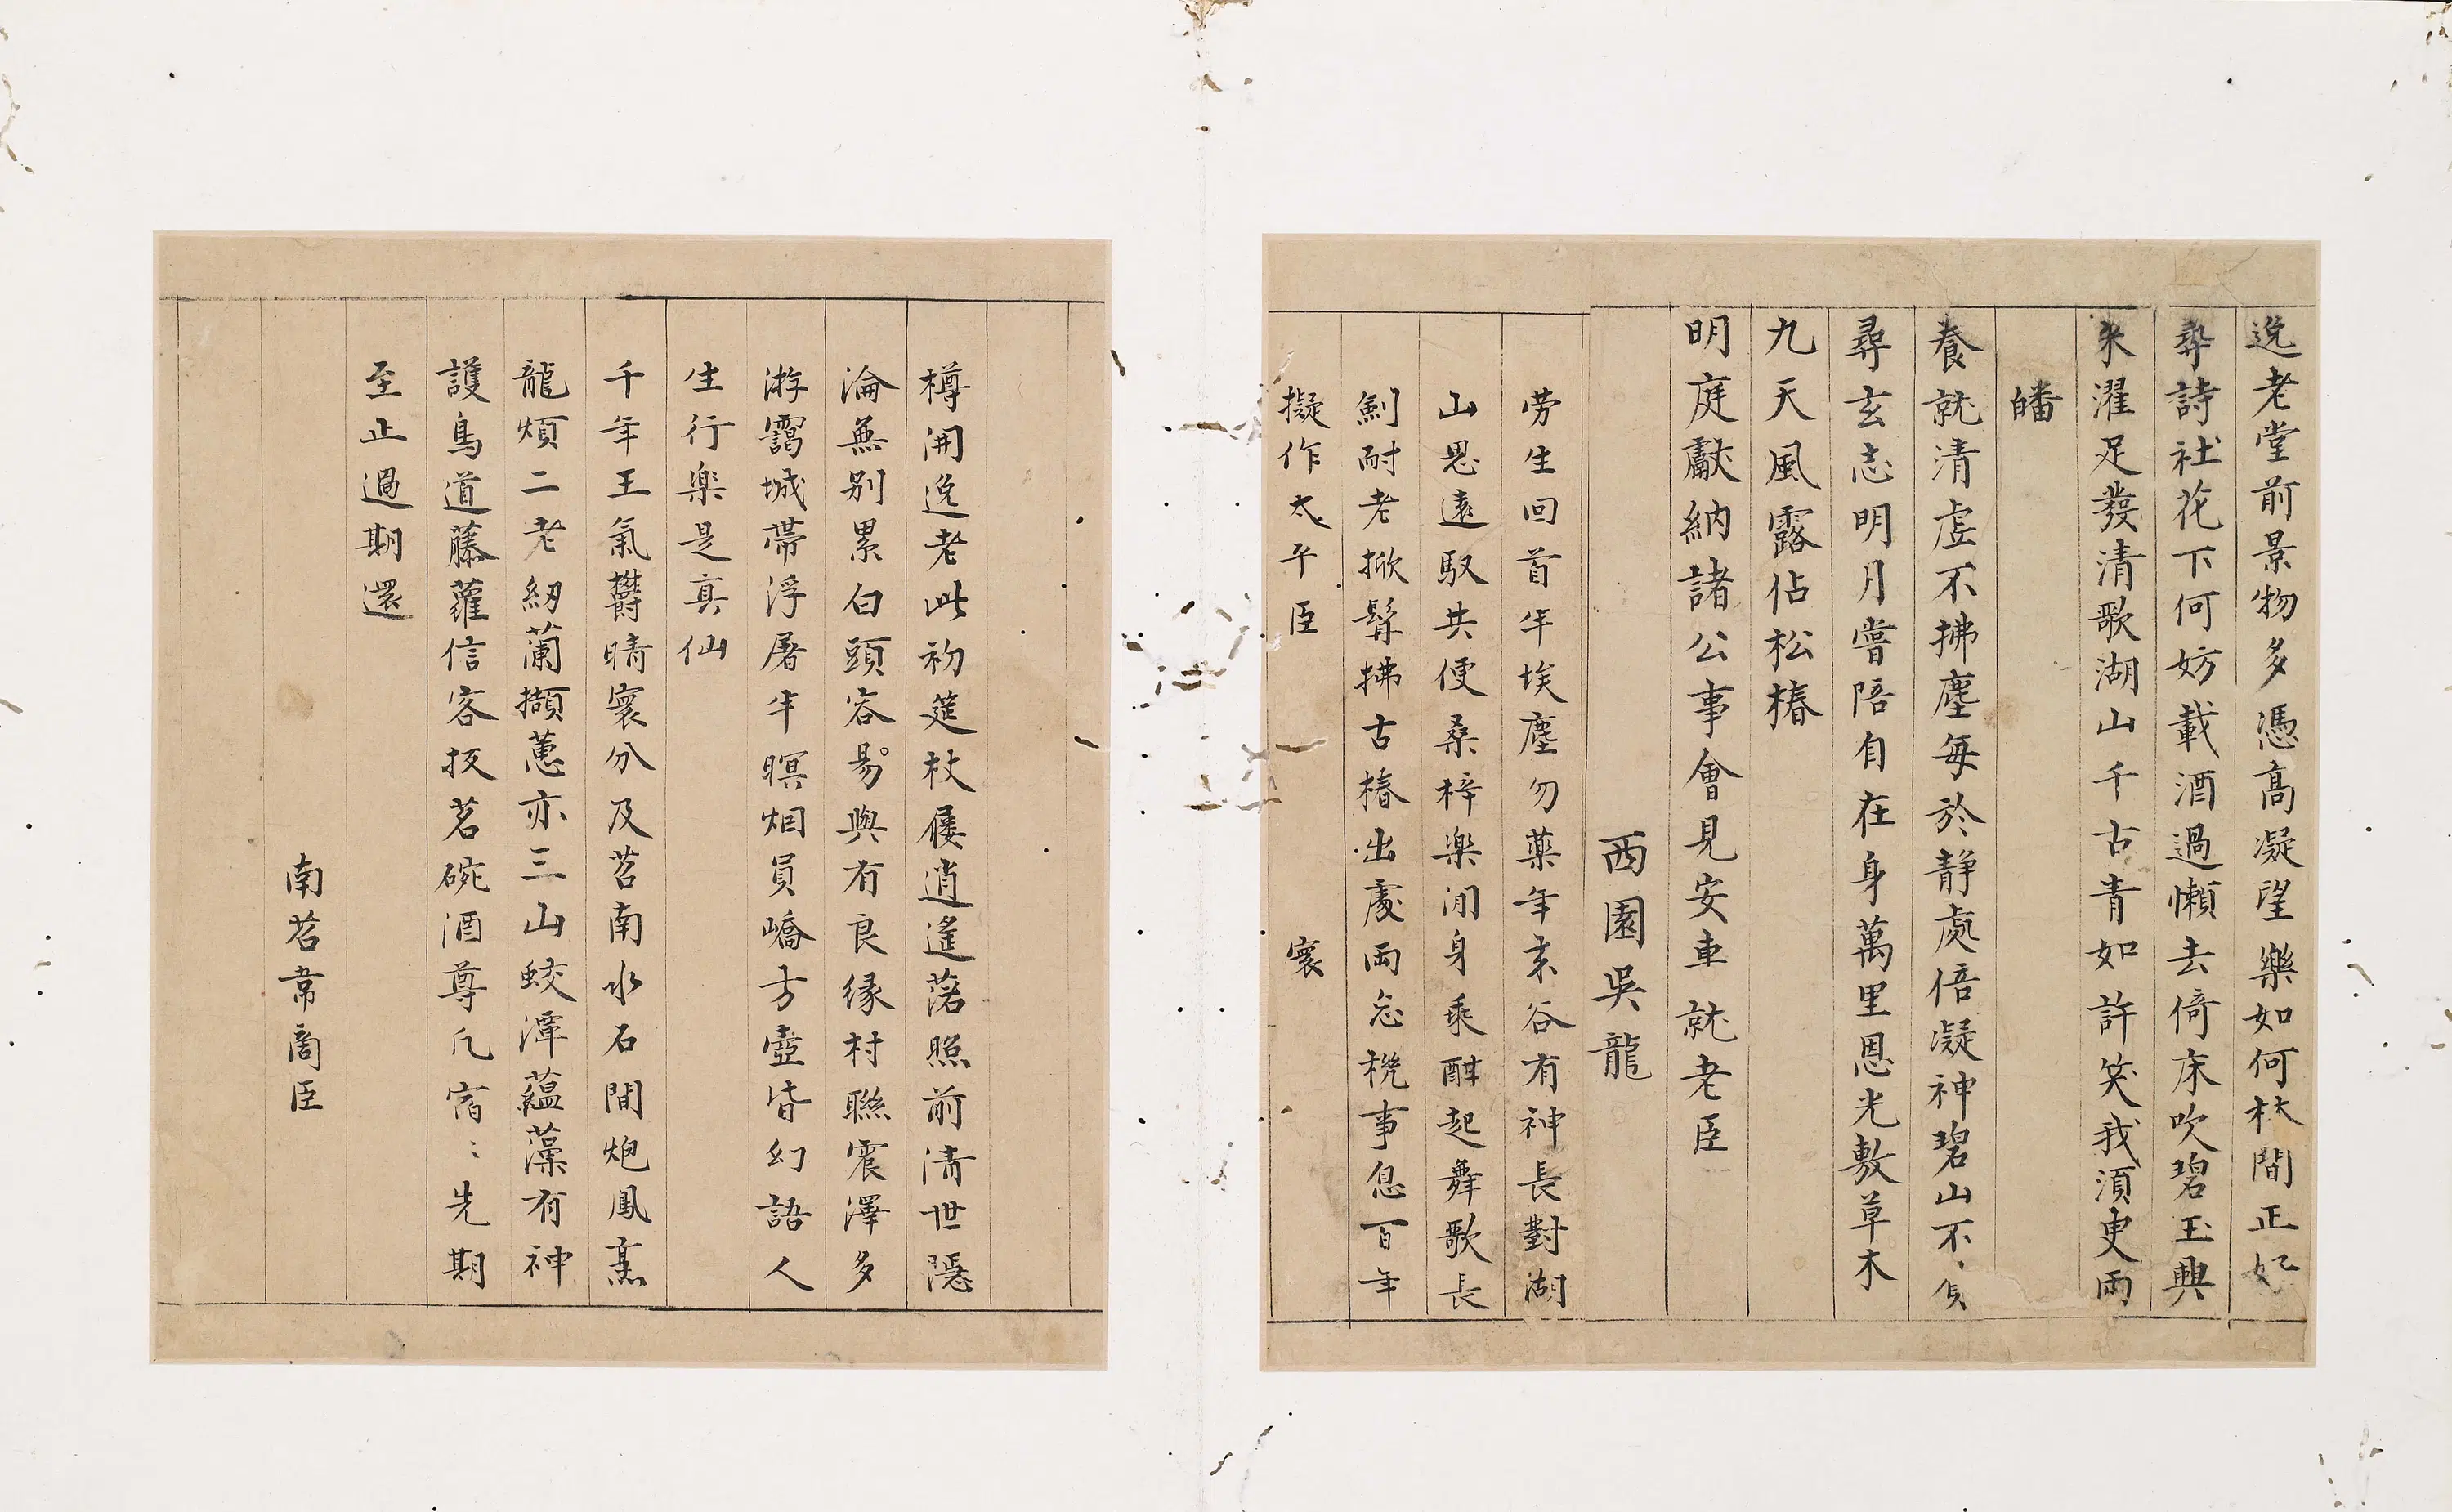 逸老堂前景物多憑高凝望樂如何林間正好
尋詩社花下何妨載酒過懶去倚床吹碧玉興
來濯足發清歌湖山千古青如許笑我須臾兩
皤
養就清虛不拂塵每於靜處倍凝神碧山不負
尋玄志明月嘗陪自在身萬里恩光敷草木
九天風露佔松椿
明庭獻納諸公事會見安車就老臣
西園吳龍
勞生回首半埃塵勿藥年來谷有神長對湖
山思遠馭共便桑梓樂閒身乘酣起舞歌長
劍耐老掀髯拂古椿出處兩忘機事息百年
擬作太平臣 寰
樽開逸老此初筵杖屨逍遙落照前清世隱
淪無別累白頭容易與有良緣村聯震澤多
游靄城帶浮屠半暝烟員嶠方壺皆幻語人
生行樂是真仙
千年王氣欝晴寰分及苕南水石間炮鳳烹
龍煩二老紉蘭擷蕙亦三山蛟潭蘊藻有神
護鳥道藤蘿信客扳茗碗酒尊凡宿〻先期
至止過期還
南苕常商臣